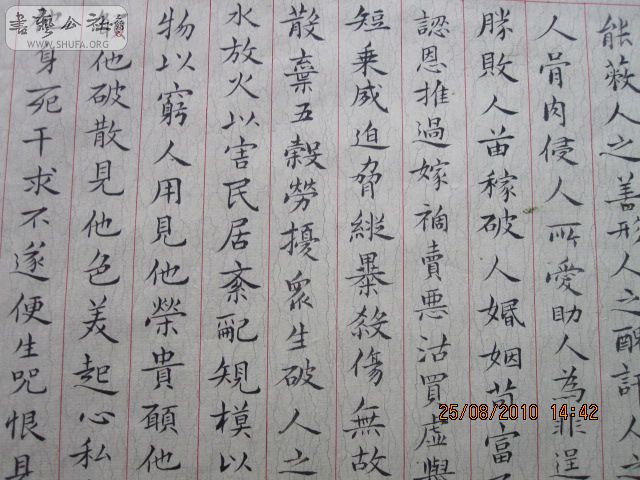 能蔽人之善形人之醜訐人之
人骨肉侵人所愛助人為非逞
勝敗人苗稼破人婚姻苟富
認恩推過嫁禍賣惡沽買虛譽
短乗威迫脅縱暴殺傷無故
散棄五穀勞擾眾生破人之
水放火以害民居紊亂規模以
物以窮人用見他榮貴願他
他破散見他色美起心私
身死干求不遂便生呪恨見
WWW.SHUFA.ORG
25/08/2010 14:42